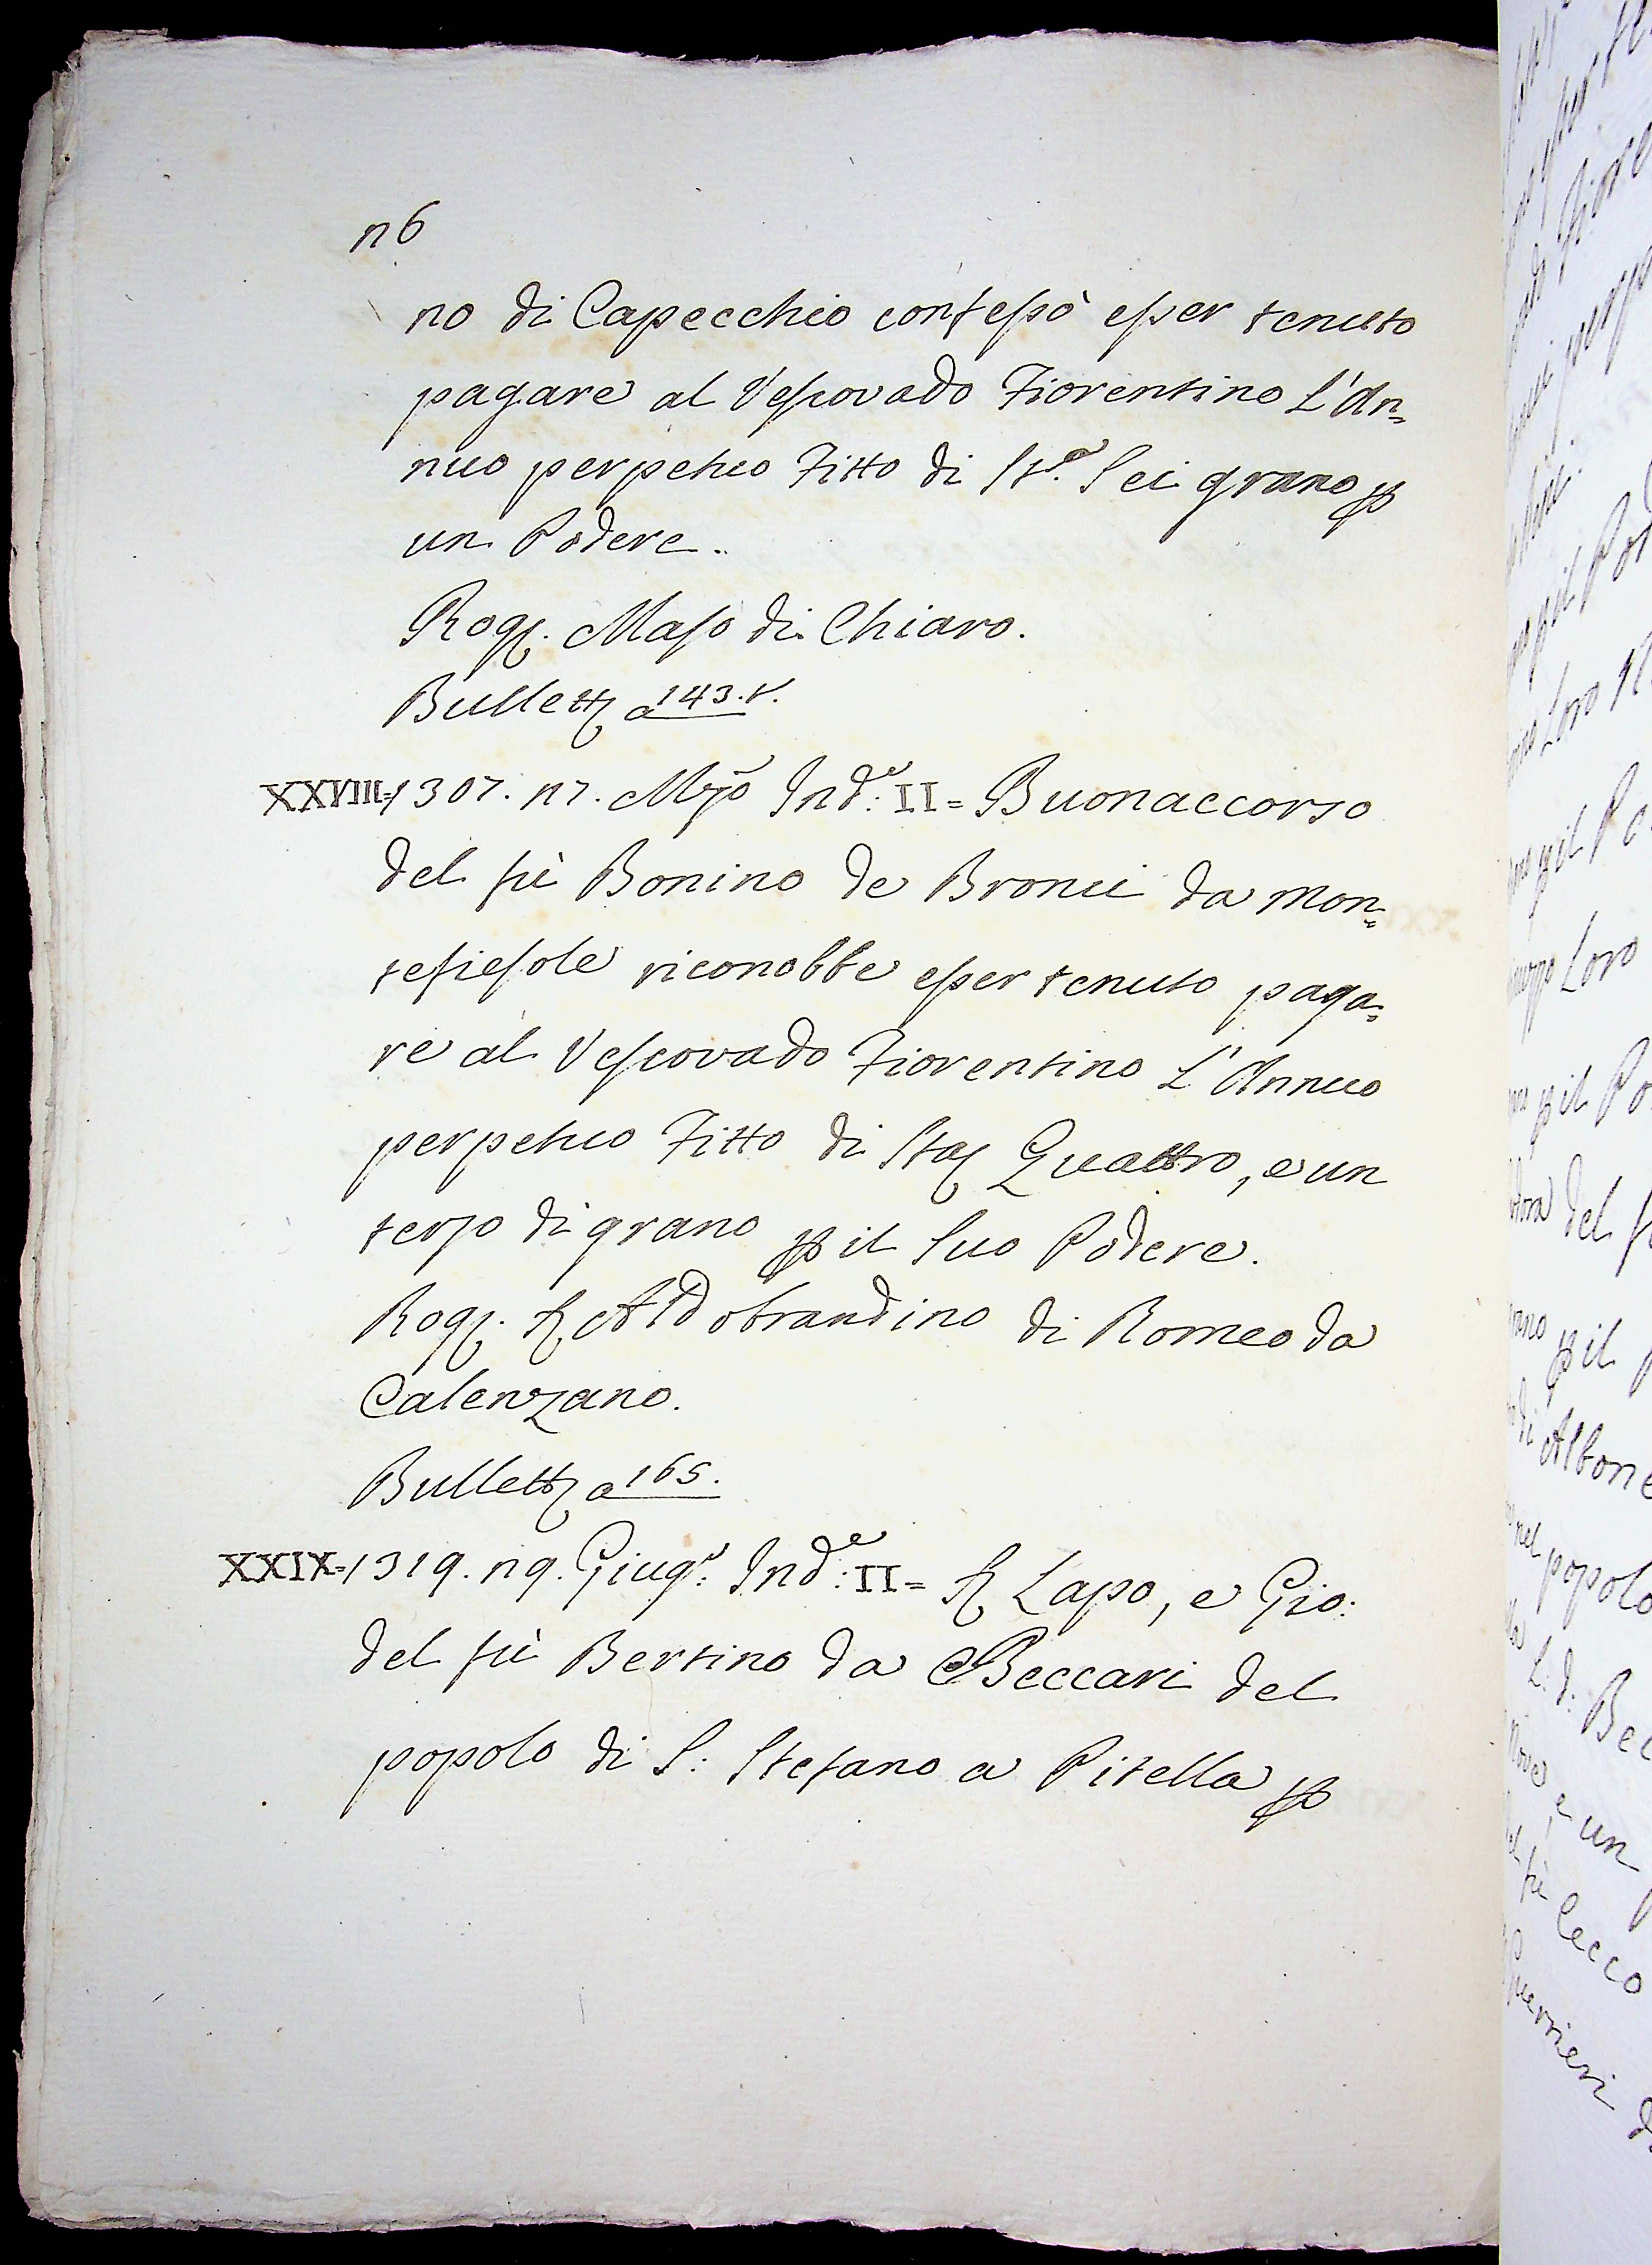 n6
no di Capecchio confessò esser tenuto
pagare al Vescovado Fiorentino L'An=
nuo perpetuo Fitto di St.ª Sei grano p
un Podere.
Rog. Maso di Chiaro.
Bullett a 143.v.
XXVIII=1307. n7. Mzo Ind.e II= Buonaccorso
del fù Bonino de Bronci da Mon=
tefiesole riconobbe esser tenuto paga=
re al Vescovado Fiorentino L'Annuo
perpetuo Fitto di Sta Quattro, e un
terzo di grano p il Suo Podere.
Rog. S Aldobrandino di Romeo da
Calenzano.
Bullett a 165.
XXIX=1319. n9. Giug.o Ind.e II= S Lapo, e Gio:
del fù Bertino da Beccari del
popolo di S: Stefano a Pitella p